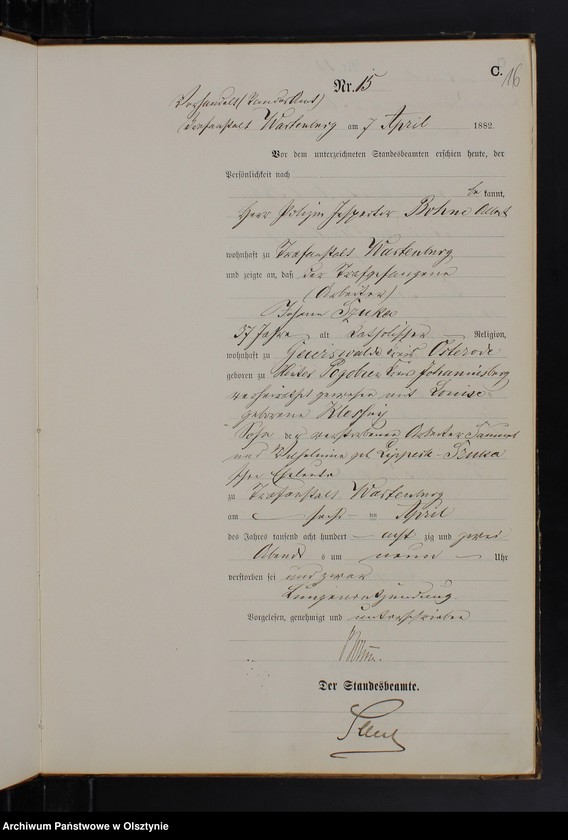 C. 16
Nr. 15
Verhandelt (Standes Amt)
Strafanstalt Wartenburg am 7 April 1882.
Vor dem unterzeichneten Standesbeamten erschien heute, der
Persönlichkeit nach
be kannt,
Herr Polizei Inspector Bohm Albert
wohnhaft zu Strafanstalt Wartenburg
und zeigte an, daß der Strafgefangene
(Arbeiter)
Johann Szuka
37 Jahre alt katholischer Religion,
wohnhaft zu Kreis Osterode
geboren zu Kreis Johannisburg
verheirathet gewesen mit Louise
geborene
Sohn der verstorbenen Arbeiter Samuel
und Wilhelmine geb. Szuka
schen Eheleute
zu Strafanstalt Wartenburg
am sechs ten April
des Jahres tausend acht hundert acht zig und zwei
Abends um neun Uhr
verstorben sei und zwar
Lungenentzündung
Vorgelesen, genehmigt und unterschrieben
Der Standesbeamte.
Archiwum Państwowe w Olsztynie